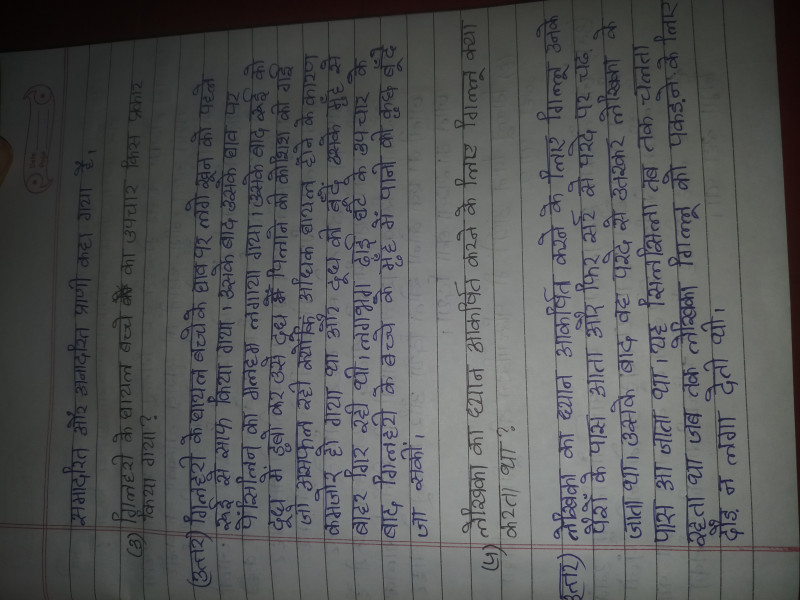 समादरित और अनादरित प्राणी कहा गया है।
(3) गिलहरी के घायल बच्चे का उपचार किस प्रकार
किया गया?
(उत्तर) गिलहरी के घायल बच्चे के घाव पर लगे खून को पहले
रूई से साफ किया गया। उसके बाद उसके घाव पर
पेंसिलिन का मलहम लगाया गया। उसके बाद रूई को
दूध में डुबो कर उसे दूध पिलाने की कोशिश की गई
जो असफल रही क्योंकि अधिक घायल होने के कारण
कमजोर हो गया था और दूध की बूँदें उसके मुँह से
बाहर गिर रही थी। लगभग ढाई घंटे के उपचार के
बाद गिलहरी के बच्चे के मुँह में पानी की कुछ बूँदें
जा सकीं।
(4) लेखिका का ध्यान आकर्षित करने के लिए गिल्लू क्या
करता था?
(उत्तर) लेखिका का ध्यान आकर्षित करने के लिए गिल्लू उनके
पैरों के पास आता और फिर सर्र से परदे पर चढ़
जाता था। उसके बाद वह परदे से उतरकर लेखिका के
पास आ जाता था। यह सिलसिला तब तक चलता
रहता था जब तक लेखिका गिल्लू को पकड़ने के लिए
दौड़ न लगा देती थी।